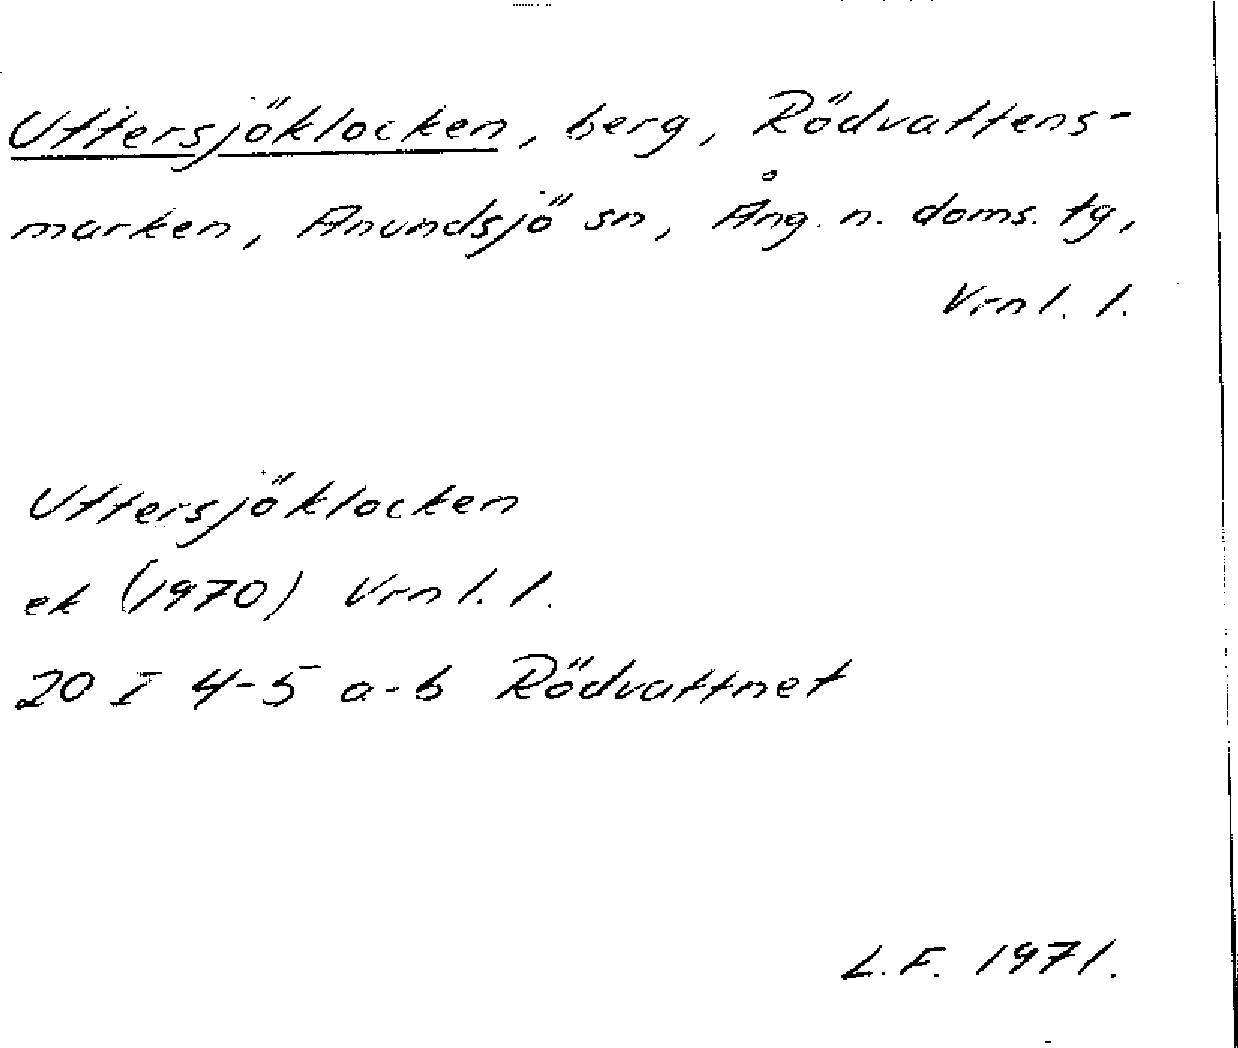 Uttersjöklocken, berg, Rödvattens-
marken, Anundsjö sn, Ång. n. doms. tg,
Vrnl. l.
Uttersjöklocken
ek (1970) Vrnl. l.
20 I 4-5 a-b Rödvattnet
L.F. 1971.